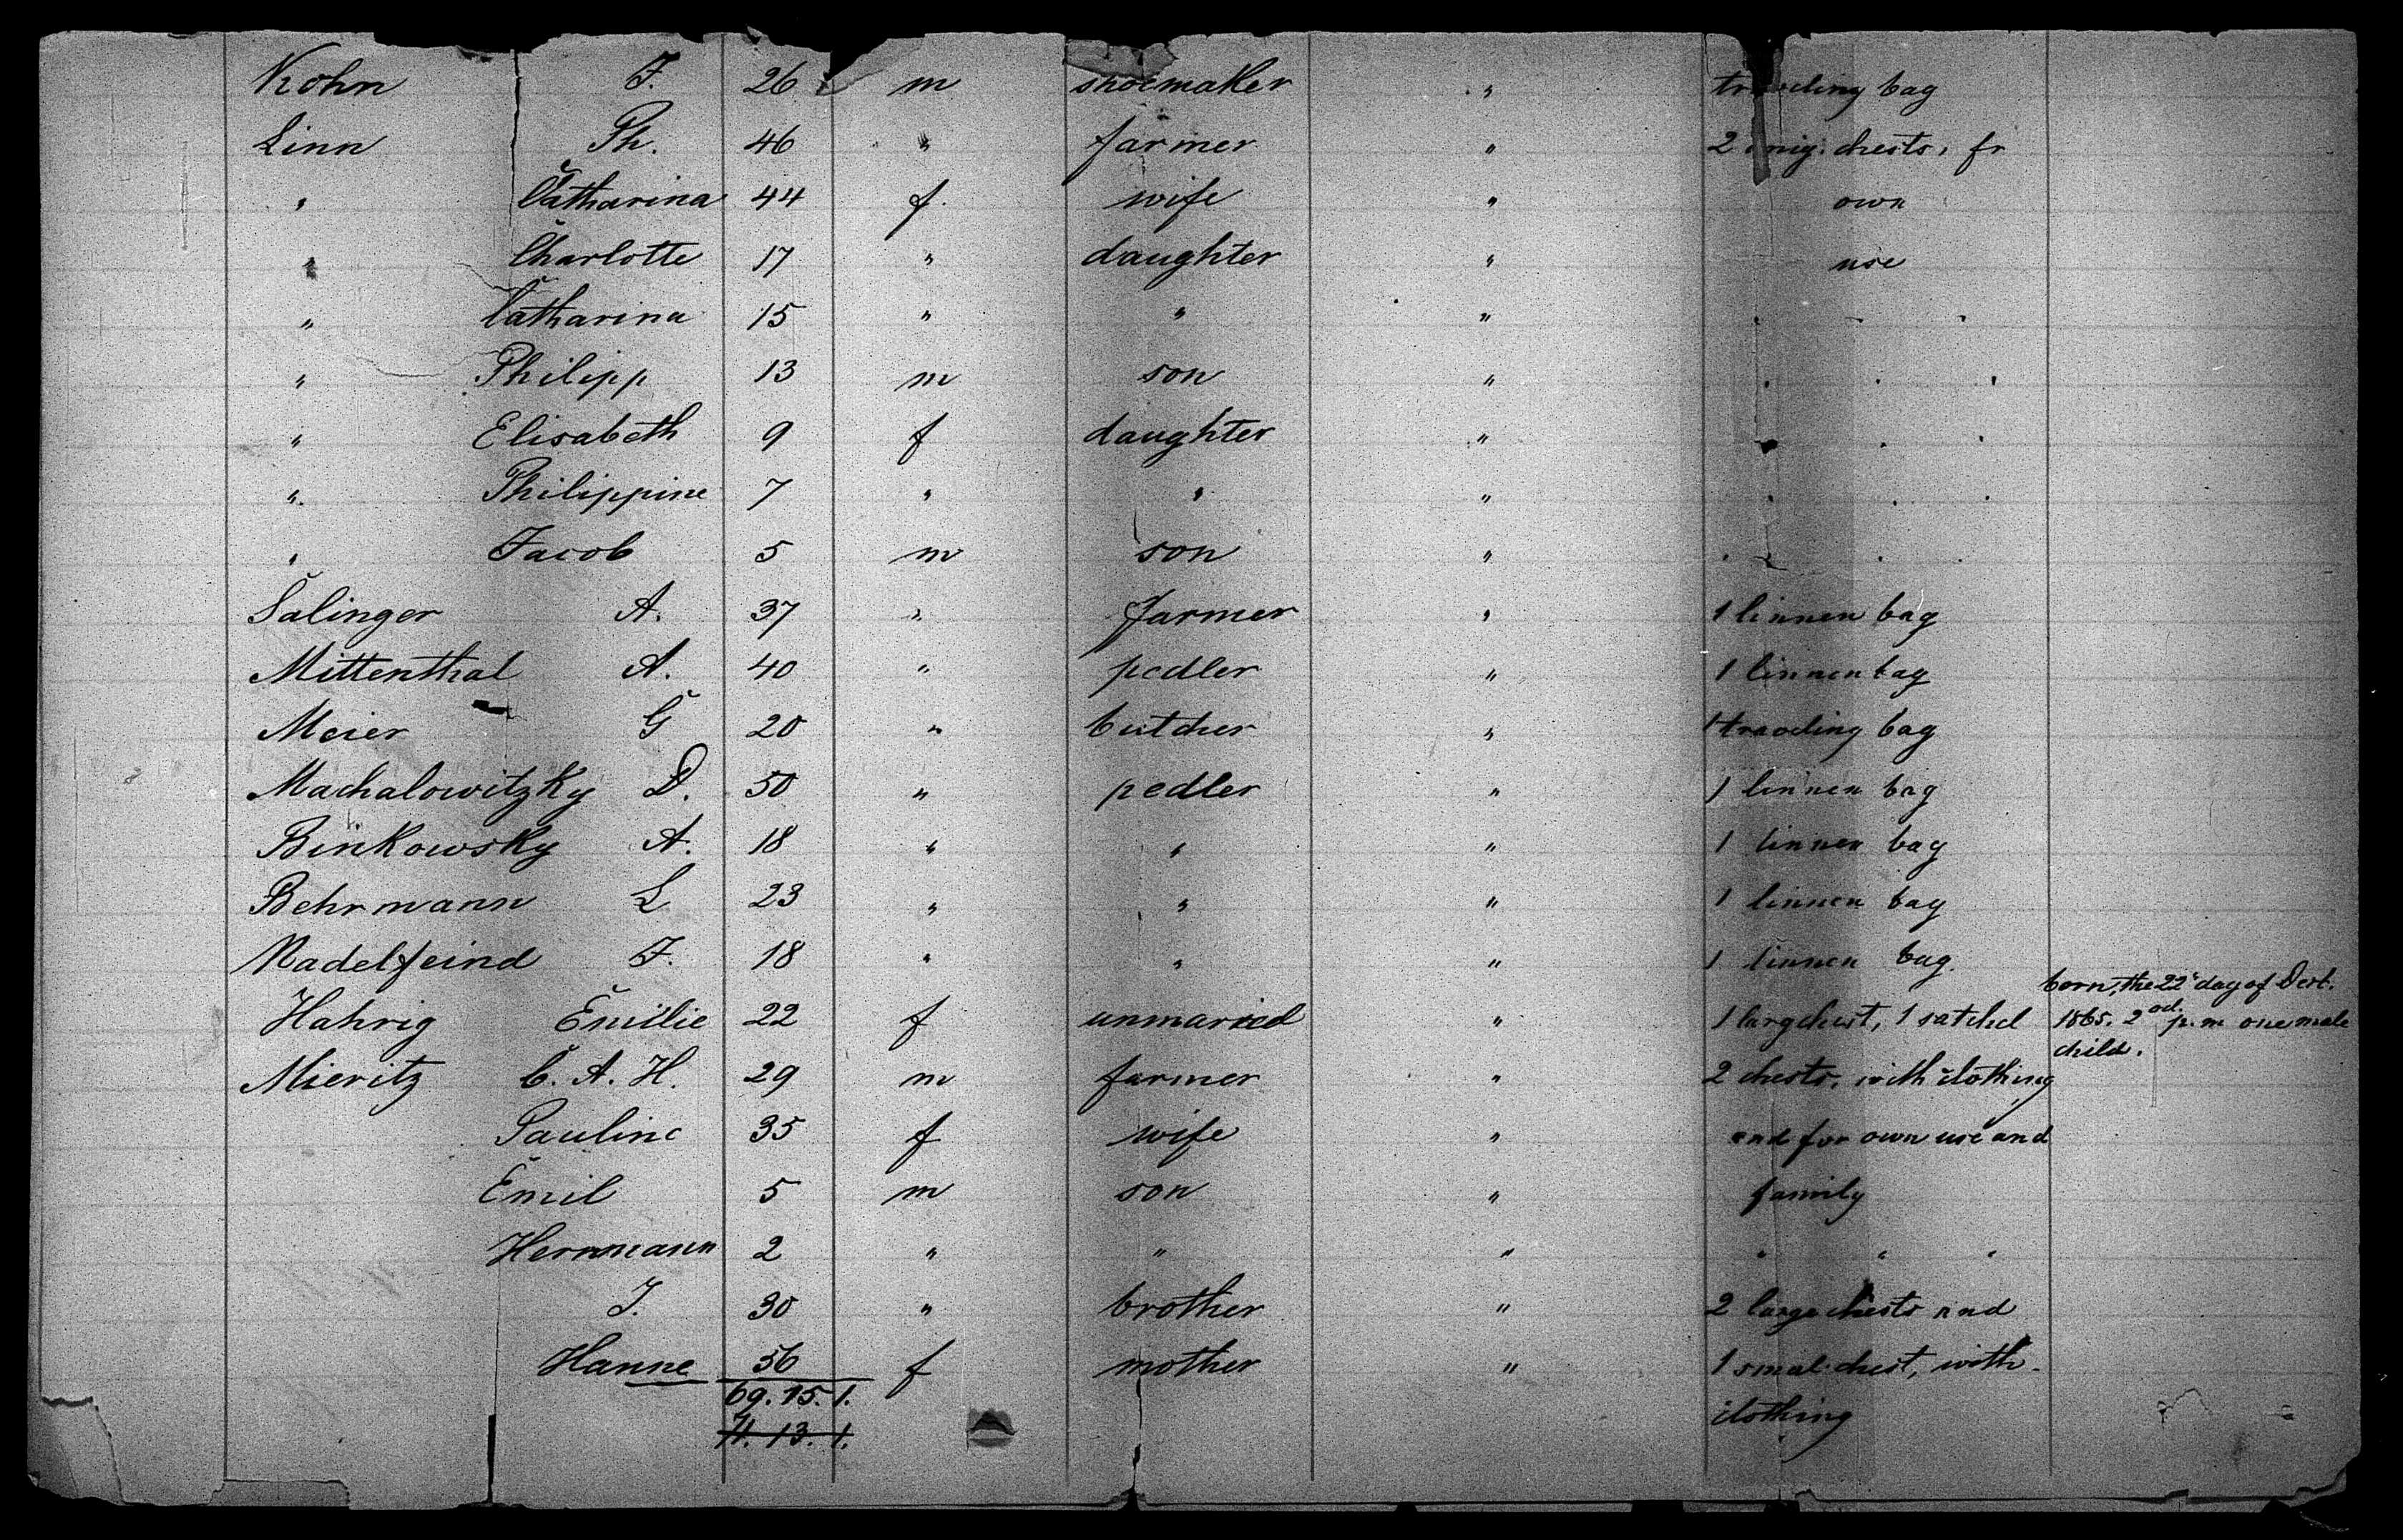 Kohn J. 26 m shoemaker " traveling bag
Linn Ph. 46 " farmer " 2 emig. chests, fr
" Catharina 44 f. wife " own
" Charlotte 17 " daughter " use
" Catharina 15 " " " " " "
" Philipp 13 m son " " " "
" Elisabeth 9 f daughter " " " "
" Philippine 7 " " " " " "
" Jacob 5 m son " " " "
Salinger A. 37 " farmer " 1 linnen bag
Mittenthal A. 40 " pedler " 1 linnen bag
Meier G 20 " butcher " 1 traveling bag
Machalowitzky D. 50 " pedler " 1 linnen bag
Binkowsky A. 18 " " " 1 linnen bag
Behrmann L 23 " " " 1 linnen bag
Nadelfeind J. 18 " " " 1 linnen bag.
born, the 22" day of
Hahrig Emilie 22 f unmaried " 1 larg chest, 1 satchel 1865. 2 p. m one male
child.
Mieritz C. A. H. 29 m farmer " 2 chests, with clothing
Pauline 35 f wife " and for own use and
Emil 5 m son " family
Herrmann 2 " " " " " "
J. 30 " brother " 2 large chests and
Hanne 56 f mother " 1 smal chest, with
69. 15. 1.
clothing
71. 13. 1.